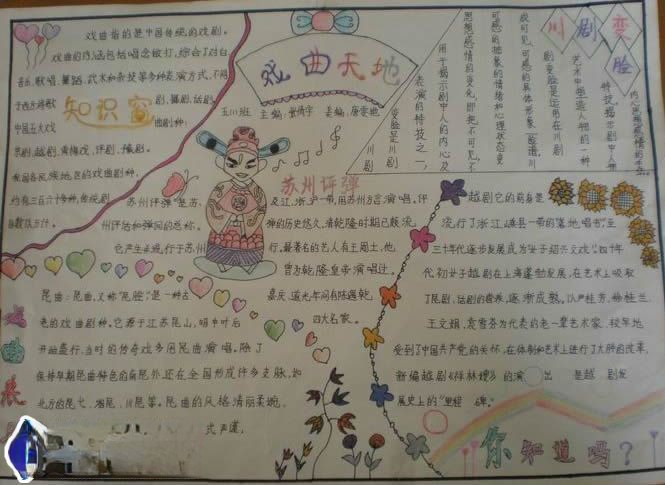 戏曲天地
五川班 主编:曾倚宇 美编:唐雯旭
知识窗
戏曲指的是中国传统的戏剧。
戏曲的内涵包括唱念做打,综合了对白
音乐、歌唱、舞蹈、武术和杂技等多种表演方式,不同
于西方将歌剧、舞剧、话剧
中国五大戏曲剧种:
京剧、越剧、黄梅戏、评剧、豫剧。
我国各民族地区的戏曲剧种,
约有三百六十多种,传统剧
目数以万计。
川剧变脸
变脸是川剧
表演的特技之一,
用于揭示剧中人的内心及
思想感情的变化,即把不可见、不
可感的抽象的情绪和心理状态变
成可见、可感的具体形象——脸谱。川
剧变脸是运用在川剧
艺术中塑造人物的一种
特技,揭示剧中人物
内心思想感情的
苏州评弹
苏州评弹是苏
州评话和弹词的总称。
它产生并流行于苏州
及江、浙、沪一带,用苏州方言演唱。评
弹的历史悠久,清乾隆时期已颇流
行。最著名的艺人有王周士,他
曾为乾隆皇帝演唱过。
嘉庆、道光年间有陈遇乾,
四大名家。
越剧它的前身是
流行了浙江嵊县一带的"落地唱书"。至
三十年代逐步发展成为"女子绍兴文戏"。四十年
代初女子越剧在上海蓬勃发展,在艺术上吸取
了昆剧、话剧的营养,逐渐成熟。以尹桂芳、袁雪芬
王文娟、为代表的老一辈艺术家,较早地
受到了中国共产党的关怀,在体制和艺术上进行了大胆的改革,
新编越剧《祥林嫂》的演出是越剧发
展史上的"里程碑。"
昆曲:昆曲,又称"昆腔",是一种古
老的戏曲剧种。它源于江苏昆山,明中叶后
开始盛行,当时的传奇戏多用昆曲演唱。除了
保持早期昆曲特色的南昆外,还在全国形成许多支脉,如
北方的昆弋、湘昆、川昆等。昆曲的风格清丽柔婉、
式严谨,
你知道吗?